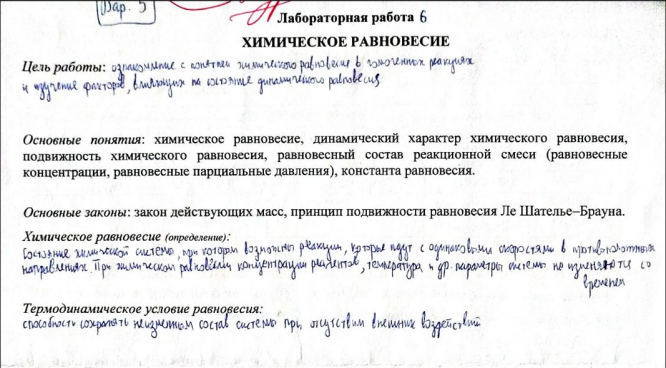 Вар. 5
Лабораторная работа 6
ХИМИЧЕСКОЕ РАВНОВЕСИЕ
Цель работы: ознакомление с понятием химического равновесие в гомогенных реакциях
и изучение факторов, влияющих на состояние динамического равновесия
Основные понятия: химическое равновесие, динамический характер химического равновесия,
подвижность химического равновесия, равновесный состав реакционной смеси (равновесные
концентрации, равновесные парциальные давления), константа равновесия.
Основные законы: закон действующих масс, принцип подвижности равновесия Ле Шателье–Брауна.
Химическое равновесие (определение):
Состояние химической системы, при котором возможны реакции, которые идут с одинаковыми скоростями в противоположных
направлениях. При химическом равновесии концентрации реагентов, температура и др. параметры системы не изменяются со
временем
Термодинамическое условие равновесия:
способность сохранять неизменным состав системы при отсутствии внешних воздействий